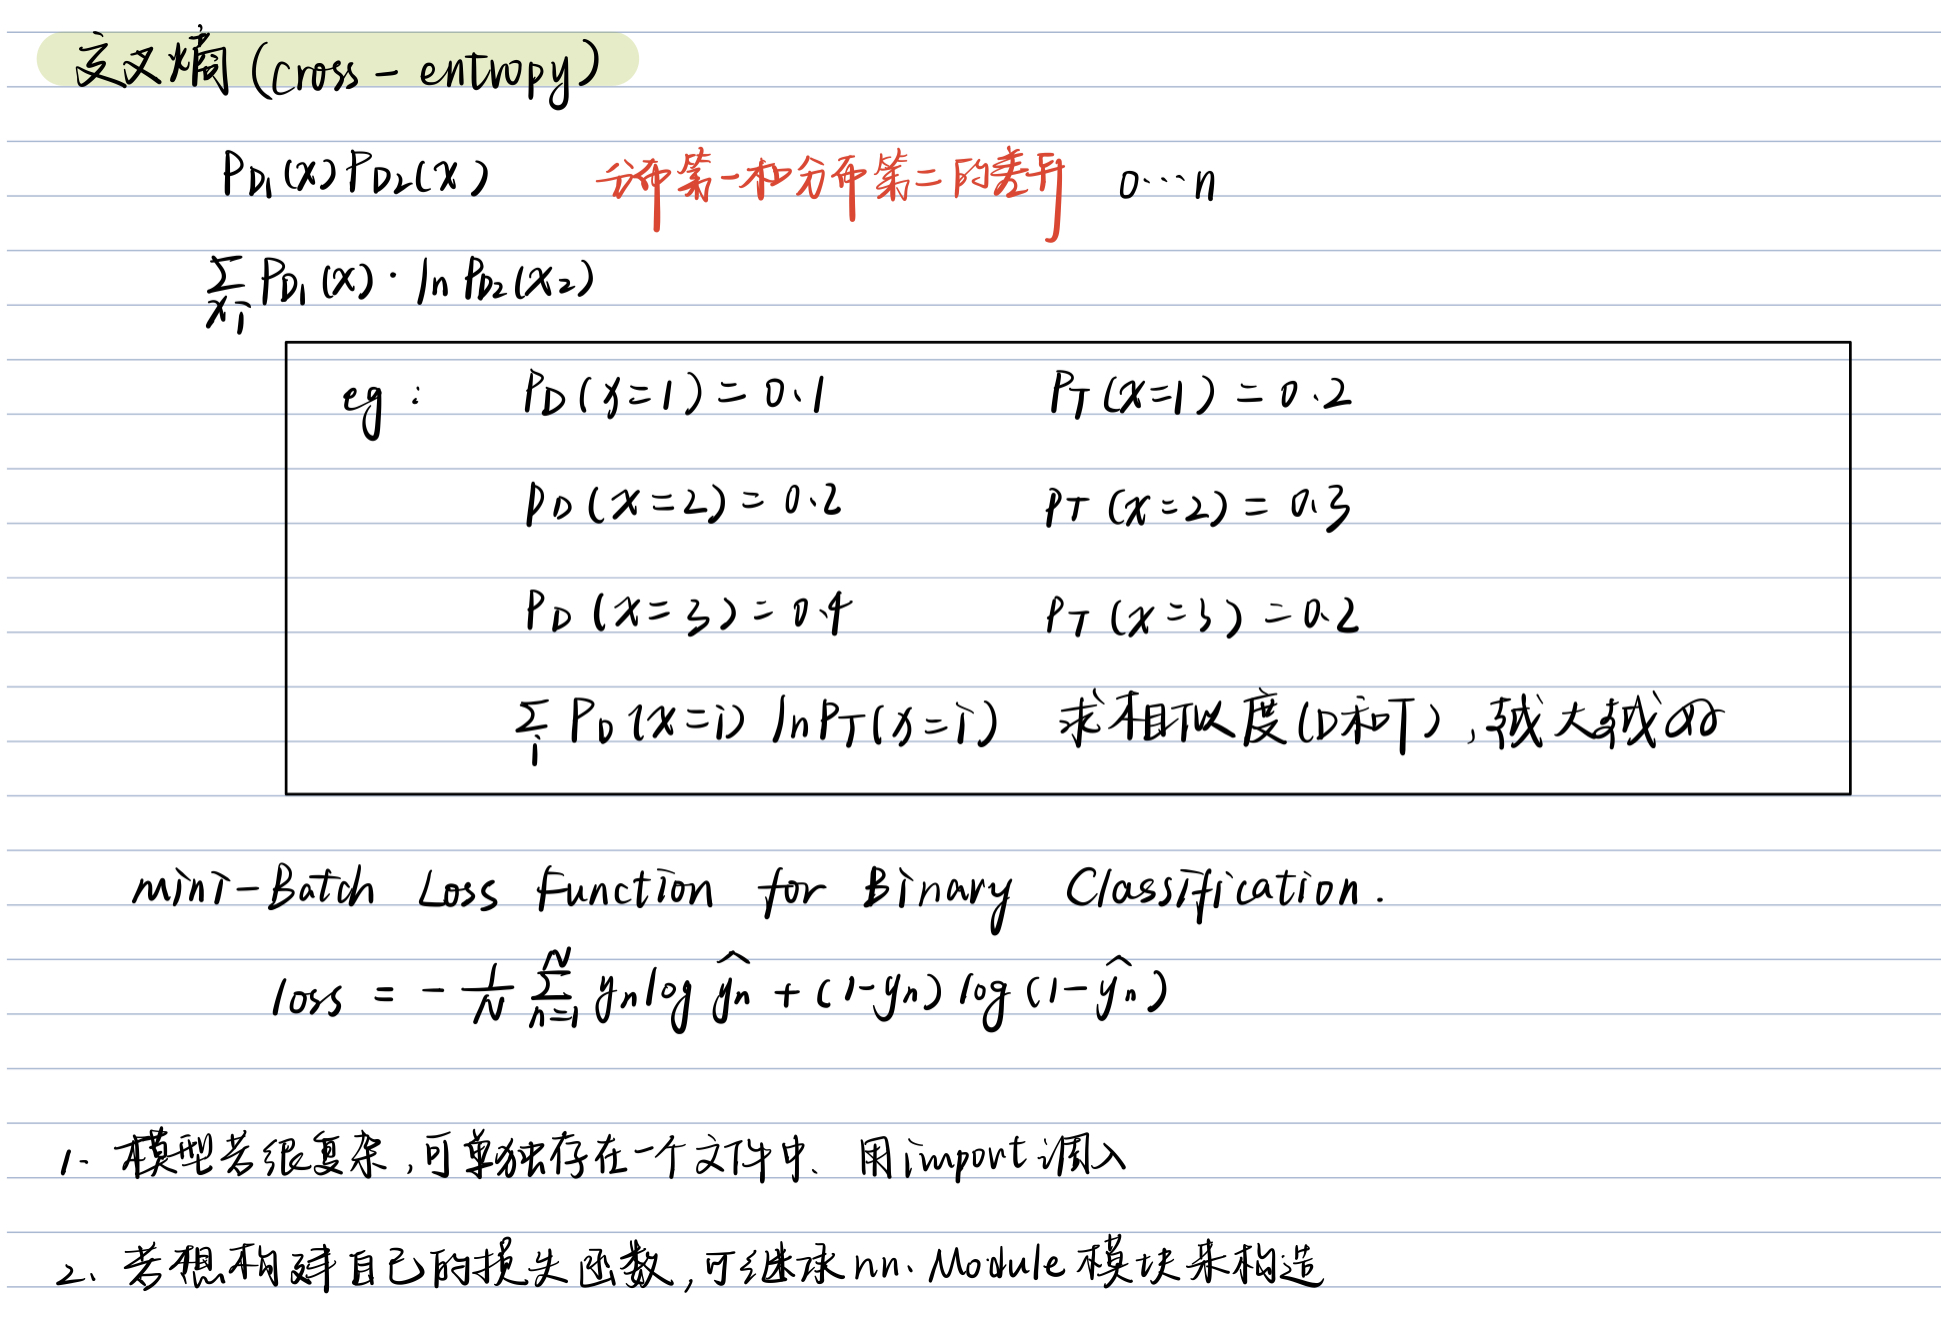 交叉熵(cross-entropy)
P_D1(x) P_D2(x) 分布第一和分布第二的差异 0…n
∑_xi P_D1(x)·ln P_D2(x2)
eg: P_D(x=1)=0.1 P_T(x=1)=0.2
P_D(x=2)=0.2 P_T(x=2)=0.3
P_D(x=3)=0.4 P_T(x=3)=0.2
∑_i P_D(x=i) ln P_T(x=i) 求相似度(D和T),越大越好
mini-Batch Loss Function for Binary Classification.
loss = -1/N ∑_{n=1}^{N} y_n log ŷ_n + (1-y_n) log(1-ŷ_n)
1. 模型若很复杂,可单独存在一个文件中、用import调入
2、若想构建自己的损失函数,可继承nn.Module模块来构造